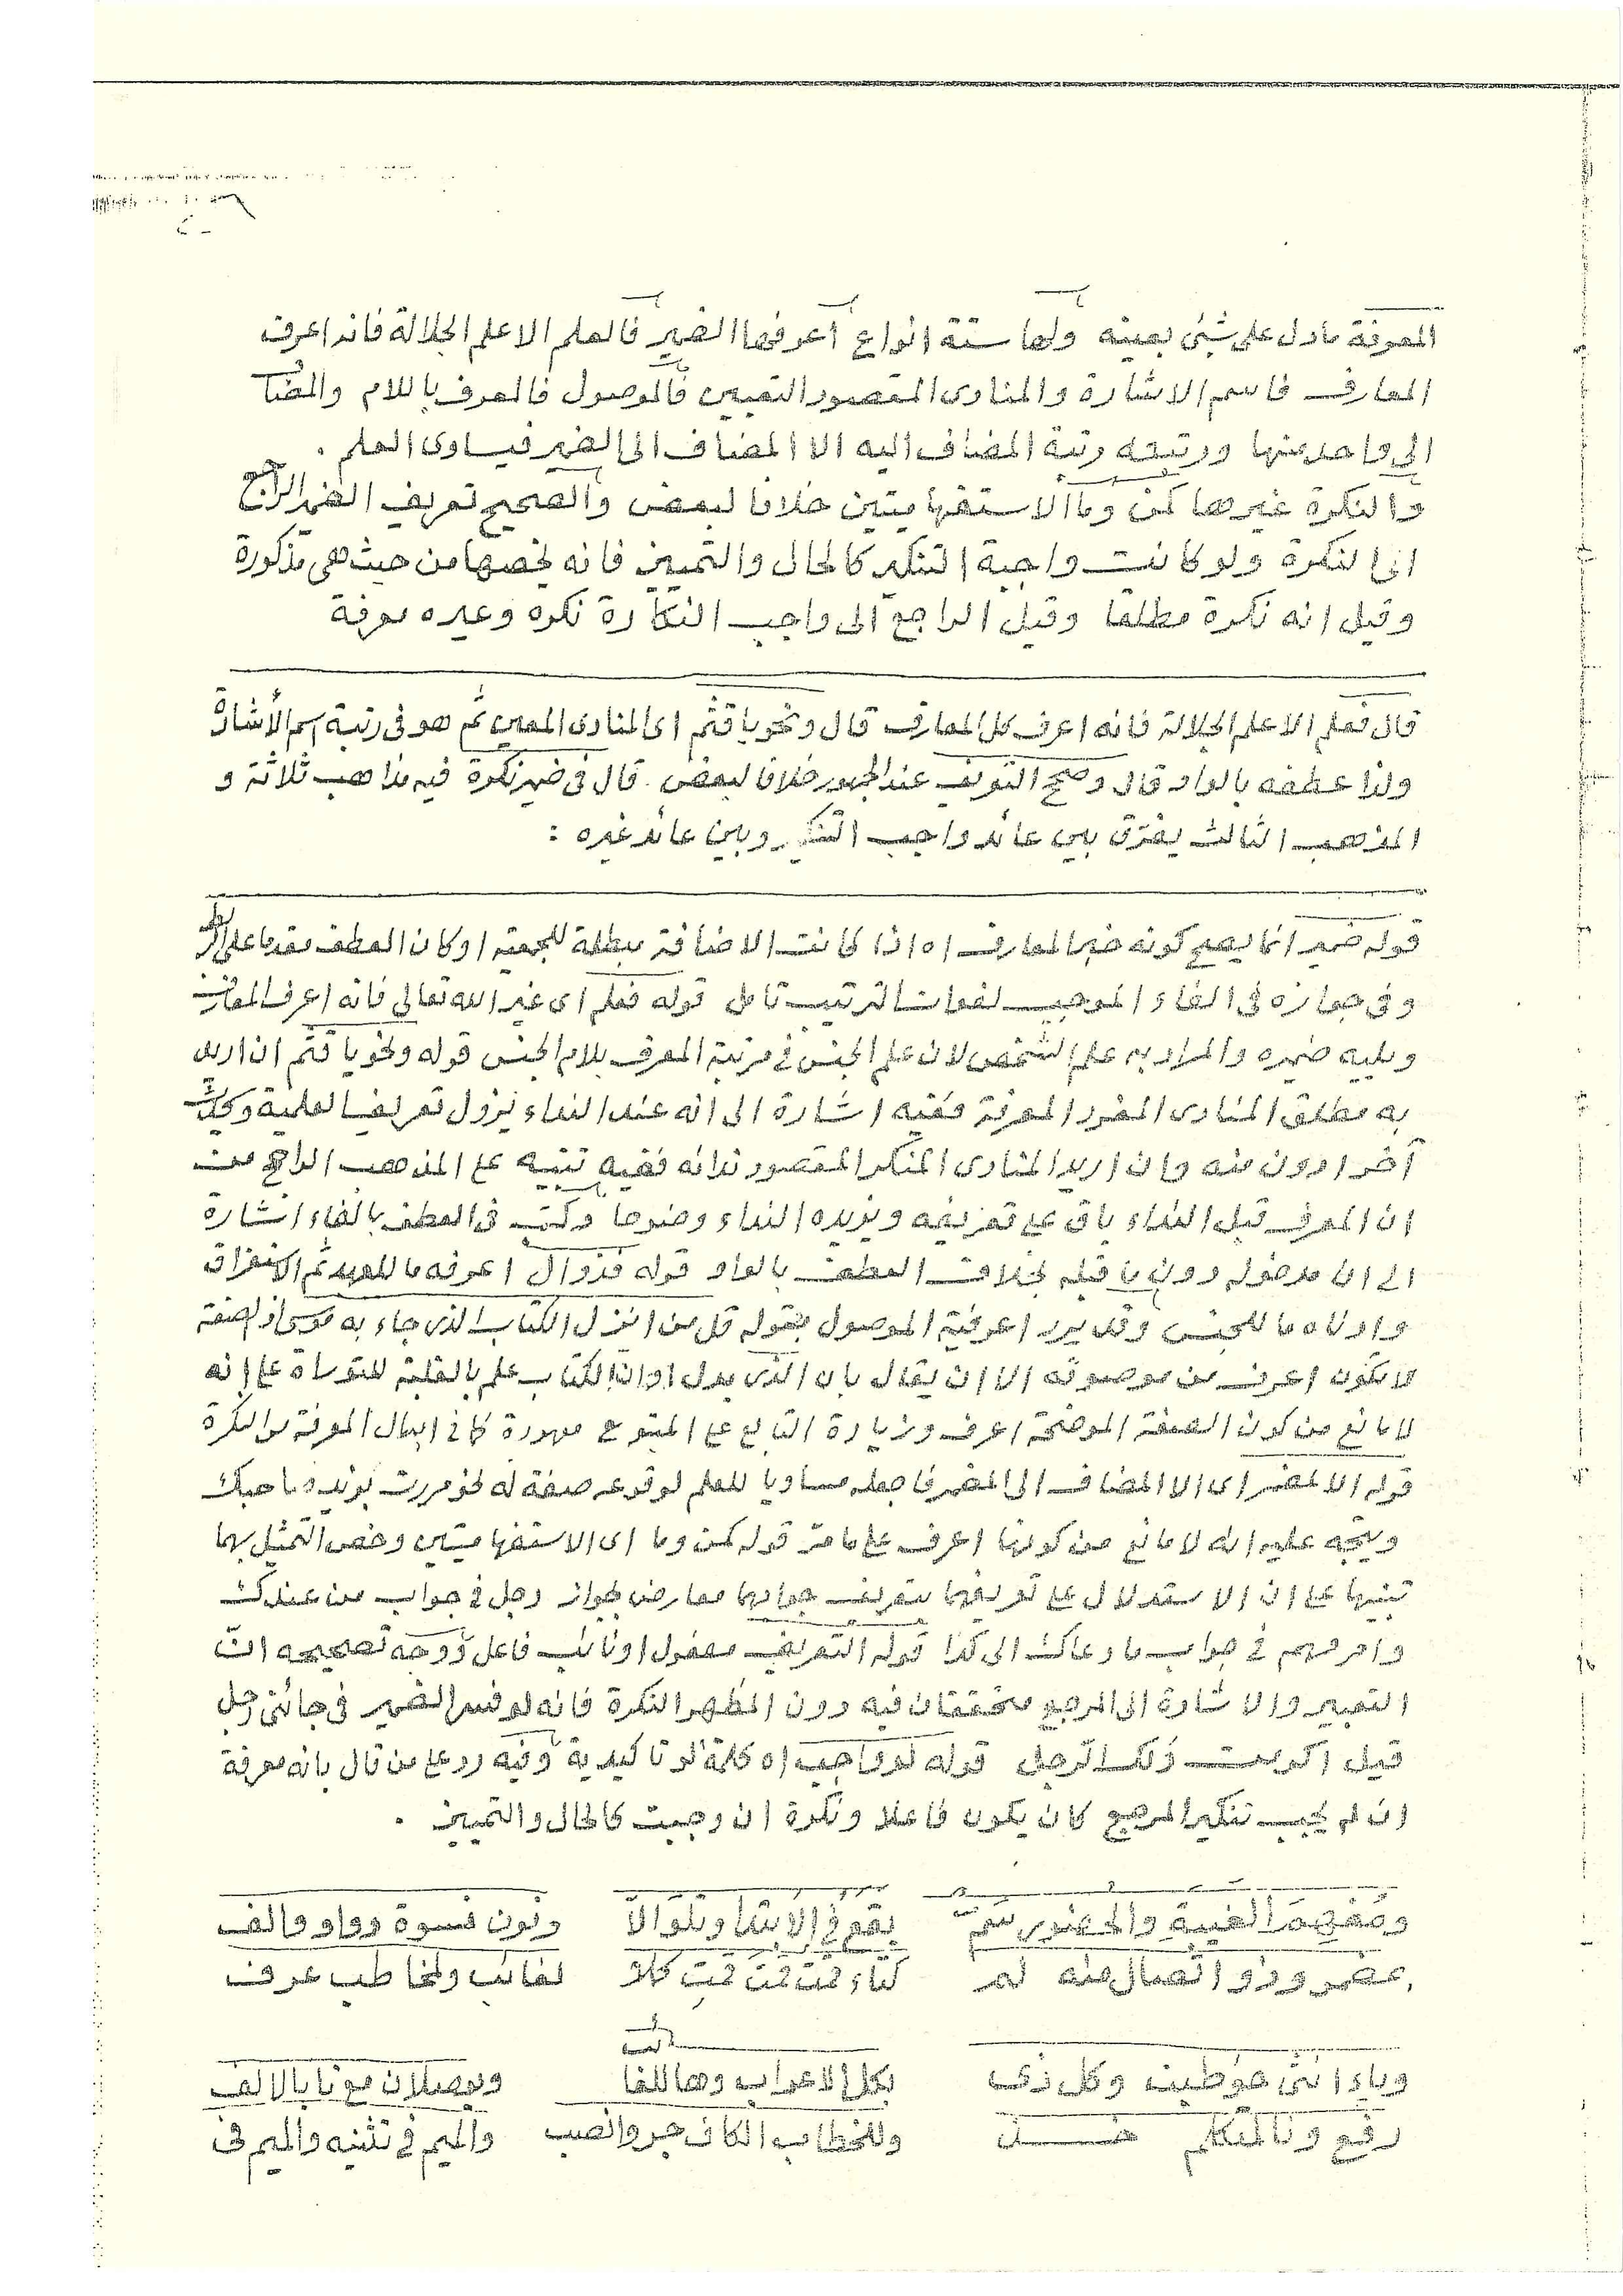 المعرفة مادل على شئ بعينه ولها ستة انواع أعرفها الضمير فالعلم الا علم الجلالة فانه اعرف
المعارف فاسم الاشارة والمنادى المقصود التعيين فالموصول فالمعرف باللام والمضا
الى واحد منها ورتبته رتبة المضاف اليه الا المضاف الى الضمير فيساوى العلم .
والنكرة غيرها كمن وما الاستفهاميتين خلافا لبعض والصحيح تعريف الضمير الراجع
الى النكرة ولو كانت واجبة التنكير كالحال والتمييز فانه يخصها من حيث هى مذكورة
وقيل انه نكرة مطلقا وقيل الراجع الى واجب النكارة نكره وغيره معرفة
قال فعلم الا علم الجلالة فانه اعرف كل المعارف قال ونحو يا قثم اى المنادى المعين ثم هو فى رتبة اسم الأشارة
ولذا عطفه بالواو قال وصحح التعريف عند الجمهور خلافا لبعض . قال فى ضمير نكرة فيه مذاهب ثلاثة و
المذهب الثالث يفرّق بين عائد واجب التنكير وبين عائد غيره :
قوله ضمير انما يصح كونه خبرا لمعارف اه اذا كانت الاضافة مبطلة للجمعية او كان العطف مقدما على
وفى جوازه فى الفاء الموجب لفوات الترتيب تامل قوله فعلم اى غير الله تعالى فانه اعرف المعارف
ويليه ضميره والمراد به علم الشخص لان علم الجنس فى مرتبة المعرف بلام الجنس قوله ونحو يا قثم ان اريد
به مطلق المنادى المفرد المعرفة ففيه اشارة الى انه عند النداء يزول تعريف العلمية
آخر ادون منه وان اريد المنادى المنكر المقصود ندائه ففيه تنبيه على المذهب الراجح من
ان المعرف قبل النداء باق على تعريفه ويزيده النداء وضوحا وكتب فى العطف بالفاء اشارة
الى ان مدخوله دون ما قبله بخلاف العطف بالواو قوله فذو ال اعرفه ما للعهد ثم الاستغراق
وادناه ما للجنس وقد يرد اعرفية الموصول بقوله قل من انزل الكتاب الذى جاء به موسى اذ الصفة
لا تكون اعرف من موصوفه الا ان يقال بان الذى بدل او ان الكتاب علم بالغلبة للتوراة على انه
لا مانع من كون الصفة الموضحة اعرف وزيادة التابع على المتبوع معهودة كما فى ابدال المعرفة من النكرة
قوله الا لمضمر اى الا المضاف الى المضمر فاجعله مساويا للعلم لوقوعه صفة له نحو مررت بزيد صاحبك
ويتجه عليه انه لا مانع من كونها اعرف على ما مر قوله كمن وما اى الاستفهاميتين وخص التمثيل بهما
تنبيها على ان الاستدلال على تعريفهما بتعريف جوابهما معارض بجواز رجل فى جواب من عندك
وامر مهم فى جواب ما دعاك الى كذا قوله التعريف مفعول او نائب فاعل ووجه تصحيحه انّ
التعبير والاشارة الى المرجع متحققان فيه دون المظهر النكرة فانه لو فسر الضمير فى جائنى رجل
قيل اكرمت ذلك الرجل قوله لو واجب اه كلمة لو تاكيدية وفيه رد على من قال بانه معرفة
ان لم يجب تنكير المرجع كان يكون فاعلا ونكرة ان وجبت كالحال والتمييز .
ومفهم الغيبة والحضور سَمّ يقع فى الابتدا وتلو الّا ونون نسوة وواو والف
بمضمر وذو اتصال منه لم كتاء قمتُ قمتَ قمتِ لغائب ولمخاطب عرف
وياء انثى خوطبت وكل ذى بكل الاعراب وها للغا ويوصلان مع نا بالالف
رفع ونا لمتكلم خذ وللخطاب الكاف جر وانصب والميم فى تثنيه والميم فى